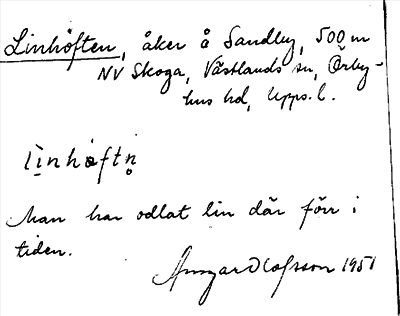 Linhöften, åker å Sandby, 500 m
NV Skoga, Västlands sn, Örby-
hus hd, Upps. l.
Man har odlat lin där förr i
tiden.
Olofsson 1951